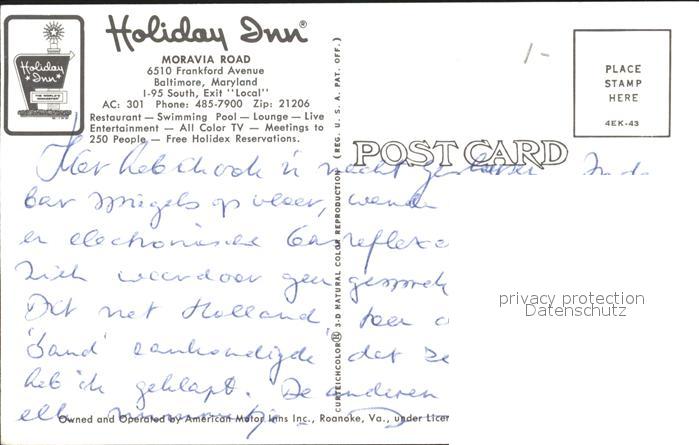 Holiday Inn®
MORAVIA ROAD
6510 Frankford Avenue
Baltimore, Maryland
I-95 South, Exit "Local"
AC: 301 Phone: 485-7900 Zip: 21206
Restaurant — Swimming Pool — Lounge — Live
Entertainment — All Color TV — Meetings to
250 People — Free Holidex Reservations.
Holiday Inn
1-
PLACE
STAMP
HERE
4EK-43
POST CARD
CURTEICHCOLOR® 3-D NATURAL COLOR REPRODUCTION (REG. U. S. A. PAT. OFF.)
Hier heb ik ook 'n nacht geslapen In de
bar spiegels op vloer, wanden
en electronische
zich waardoor geen gesprek
Dit met Holland toen
'band' aankondigde dat ze
heb ik geklapt. De anderen
elk
privacy protection
Datenschutz
Owned and Operated by American Motor Inns Inc., Roanoke, Va., under Licen